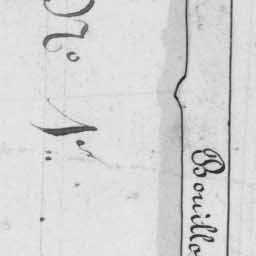 N.o 1.er
Bouillo